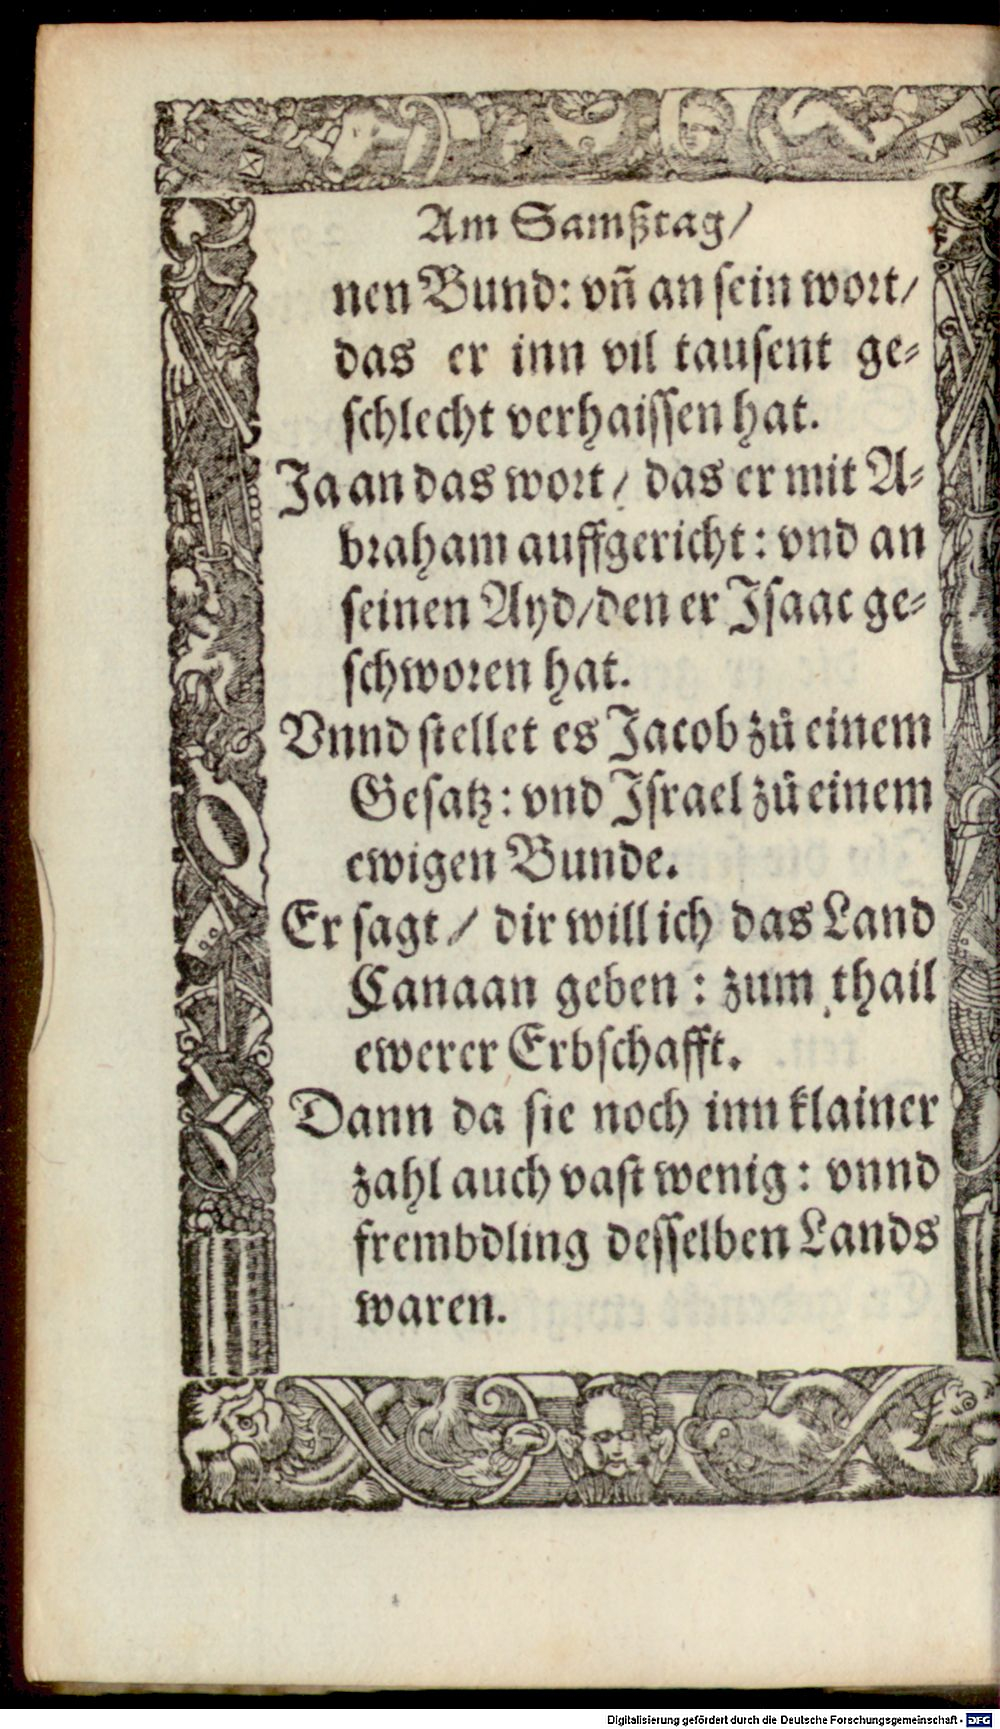 Am Samßtag/
nen Bund: vñ an sein wort/
das er inn vil tausent ge=
schlecht verhaissen hat.
Ja an das wort/ das er mit A=
braham auffgericht: vnd an
seinen Ayd/den er Isaac ge=
schworen hat.
Vnnd stellet es Jacob zů einem
Gesatz: vnd Israel zů einem
ewigen Bunde.
Er sagt/ dir will ich das Land
Canaan geben: zum thail
ewerer Erbschafft.
Dann da sie noch inn klainer
zahl auch vast wenig: vnnd
frembdling desselben Lands
waren.
Digitalisierung gefördert durch die Deutsche Forschungsgemeinschaft - DFG